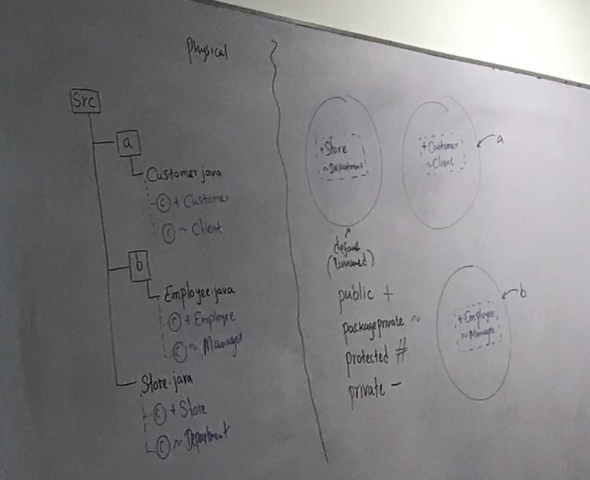 Physical
Src
a
Customer.java
C + Customer
C ~ Client
b
Employee.java
C + Employee
C ~ Manager
Store.java
C + Store
C ~ Department
+ Store
~ Department
+ Customer
~ Client
a
default
(unnamed)
public +
package private ~
protected #
private -
+ Employee
~ Manager
b